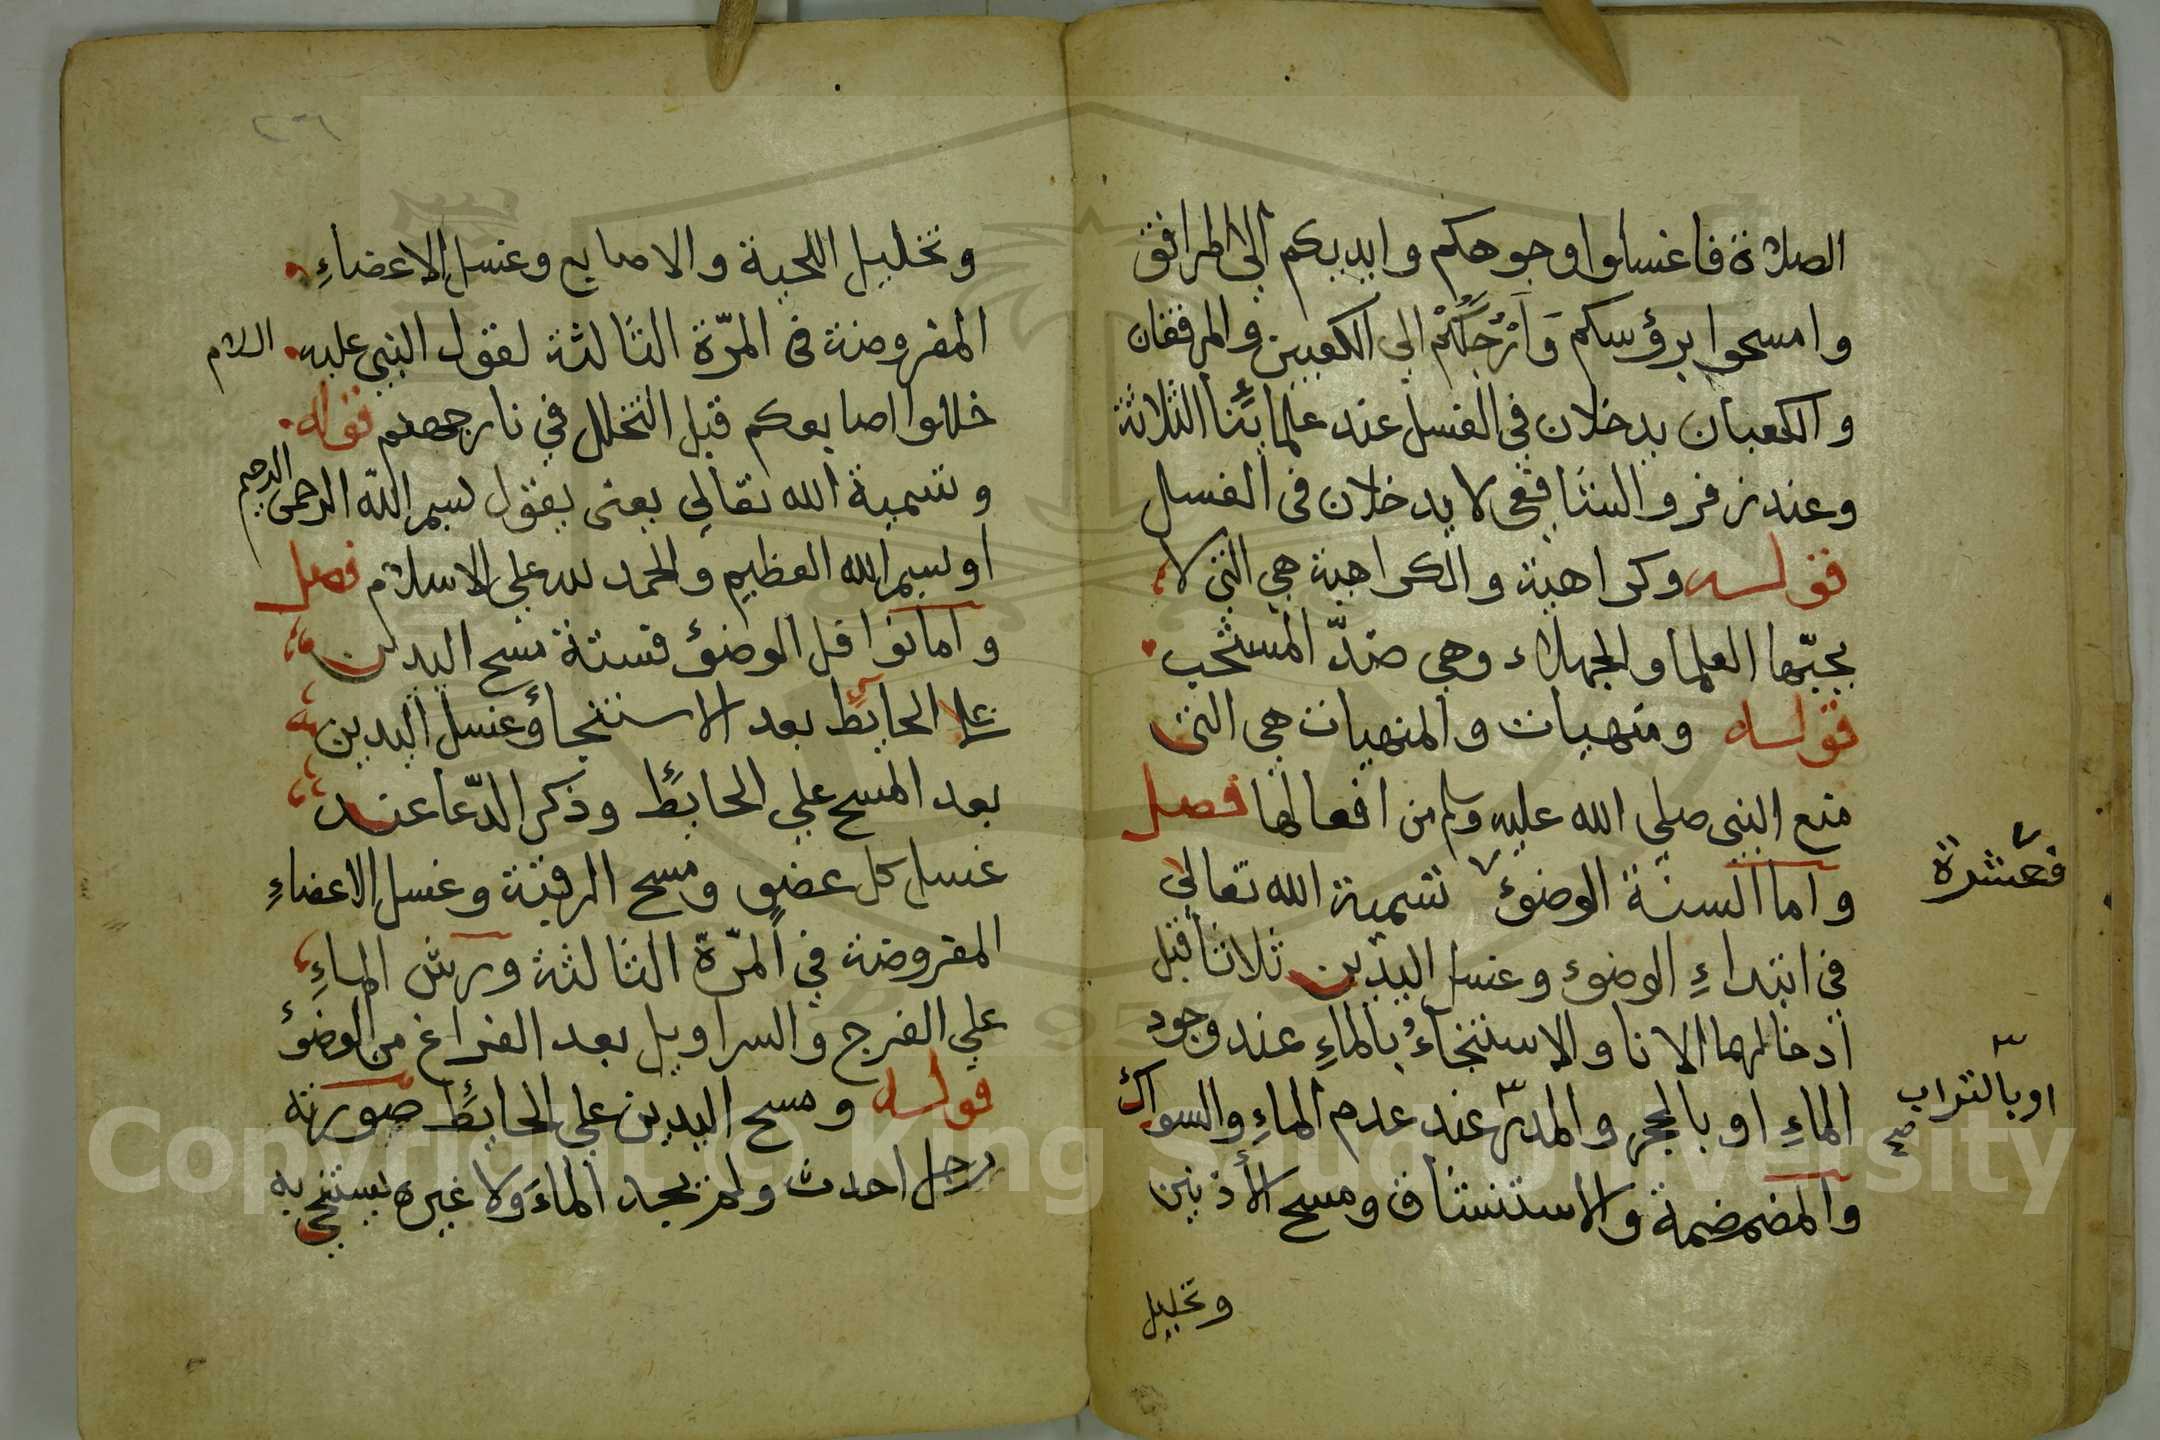 الصلاة فاغسلوا وجوهكم وايديكم الى المرافق
وامسحوا برؤسكم وَاَرْجُلَكُمْ الي الكعبين والمرفقان
والكعبان يدخلان في الغسل عند علمائنا الثلاثة
وعند زفر والشافعى لا يدخلان فى الغسل
قوله وكراهية والكراهية هي التي لا
يحبّها العلما والجهلاء وهي ضدّ المستحب
قوله ومنهيات والمنهيات هي التى
منع النبى صلي الله عليه وسلم من افعالها فصل
واما السنة الوضوء تسمية الله تعالى
فعشرة
في ابتداءِ الوضوء وغسل اليدين ثلاثا قبل
ادخالهما الانا والاستنجاءُ بالماءِ عند وجود
الماءِ او بالحجر والمدر عند عدم الماءِ والسواك
او بالتراب صح
والمضمضة والاستنشاق ومسح الأذنين
وتخليل
وتخليل اللحية والاصابع وغسل الاعضاءِ
المفروضة فى المرّة الثالثة لقول النبي عليه السلام
خللوا اصابعكم قبل التخلل في نار جهنم قوله
وتسمية الله تعالي يعنى يقول بسم الله الرحمن الرحيم
او بسم الله العظيم والحمد لله علي الاسلام فصل
واما نوافل الوضوء فستة مسح اليدين
علا الحايط بعد الاستنجاء وغسل اليدين
بعد المسح علي الحايط وذكر الدّعا عند
غسل كل عضو ومسح الرقبة وغسل الاعضاءِ
المفروضة في المرّة الثالثة ورش الماءِ
علي الفرج والسراويل بعد الفراغ من الوضوء
قوله ومسح اليدين علي الحايط صورته
رجل احدث ولم يجد الماءَ ولا غيره يستنجي به